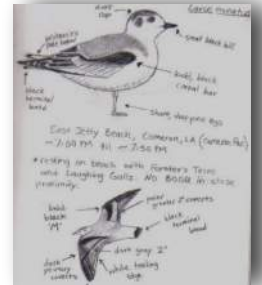 dark cap
small black bill
bold, black
carpal bar
black
terminal
band
short, deep pink legs
East Jetty Beach, Cameron, LA (Cameron Par.)
~ 7:00 PM til ~ 7:30 PM
* resting on beach with Forster's Terns
and Laughing Gulls. NO BOGU in close
proximity.
bold
black
'M'
greater 2° coverts
black
terminal
band
dark gray 2°
dark
primary
coverts
white trailing
edge